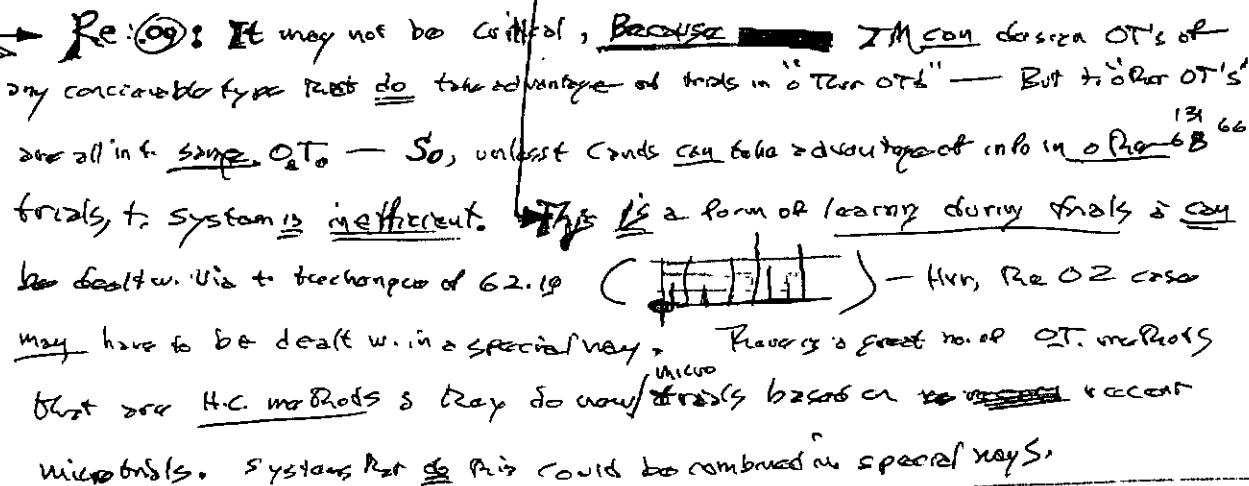 → Re: .09 : It may not be critical, Because TM can design OT's of
any conceivable type that do take advantage of trials in "other OTs" — But t. "other OT's"
131 66
are all in t. same OT. — So, unless t Cands can take advantage of info in other
trials, t. system is inefficient. → This is a form of learng during trials & can
be dealt w. via t. techniques of 62.19 ( ) — Hvr, the OZ case
may have to be dealt w. in a special way. There is a great no. of OT. methods
micro
that are H.C. methods & they do new trials based on recent
microtrials. Systems that do this could be combined in special ways.